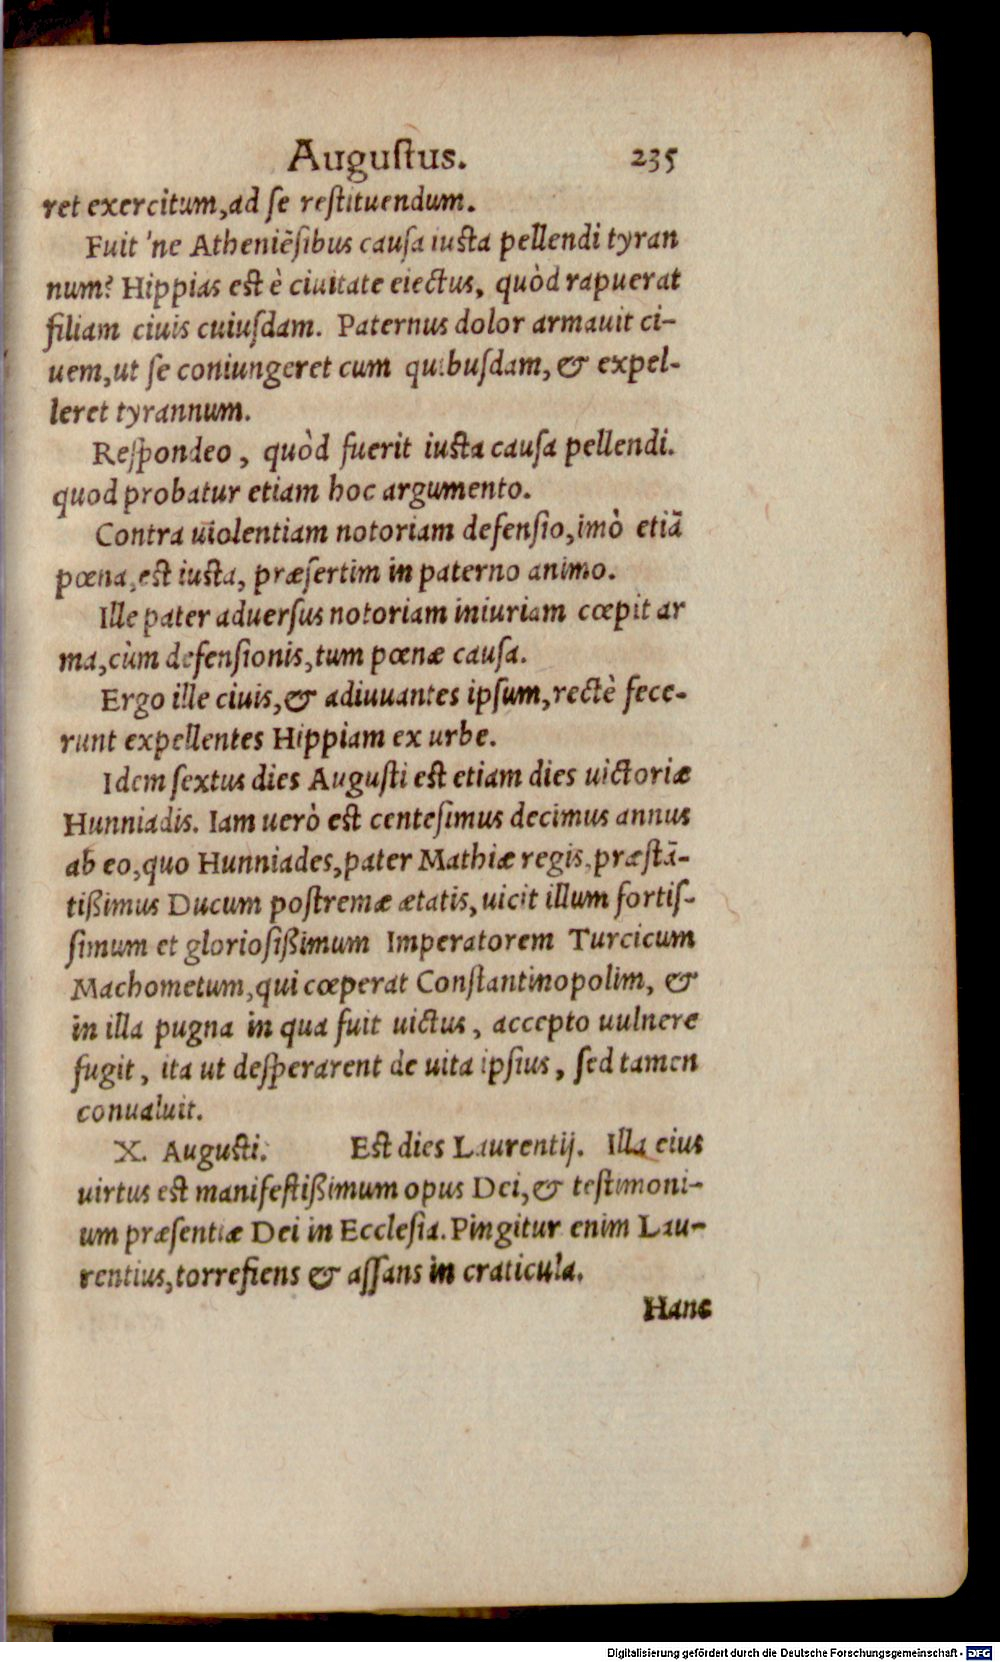 Auguſtus. 235
ret exercitum,ad ſe reſtituendum.
Fuit 'ne Atheniēſibus cauſa iuſta pellendi tyran
num? Hippias eſt è ciuitate eiectus, quòd rapuerat
filiam ciuis cuiuſdam. Paternus dolor armauit ci-
uem,ut ſe coniungeret cum quibuſdam, & expel-
leret tyrannum.
Reſpondeo, quòd fuerit iuſta cauſa pellendi.
quod probatur etiam hoc argumento.
Contra uiolentiam notoriam defenſio,imò etiã
pœna,eſt iuſta, præſertim in paterno animo.
Ille pater aduerſus notoriam iniuriam cœpit ar
ma,cùm defenſionis,tum pœnæ cauſa.
Ergo ille ciuis,& adiuuantes ipſum,rectè fece-
runt expellentes Hippiam ex urbe.
Idem ſextus dies Auguſti eſt etiam dies uictoriæ
Hunniadis. Iam uerò eſt centeſimus decimus annus
ab eo,quo Hunniades,pater Mathiæ regis,præſtã-
tißimus Ducum poſtremæ ætatis,uicit illum fortiſ-
ſimum et glorioſißimum Imperatorem Turcicum
Machometum,qui cœperat Conſtantinopolim, &
in illa pugna in qua fuit uictus, accepto uulnere
fugit, ita ut deſperarent de uita ipſius, ſed tamen
conualuit.
X. Auguſti. Eſt dies Laurentij. Illa eius
uirtus eſt manifeſtißimum opus Dei,& teſtimoni-
um præſentiæ Dei in Eccleſia. Pingitur enim Lau-
rentius,torrefiens & aſſans in craticula.
Hanc
Digitalisierung gefördert durch die Deutsche Forschungsgemeinschaft - DFG